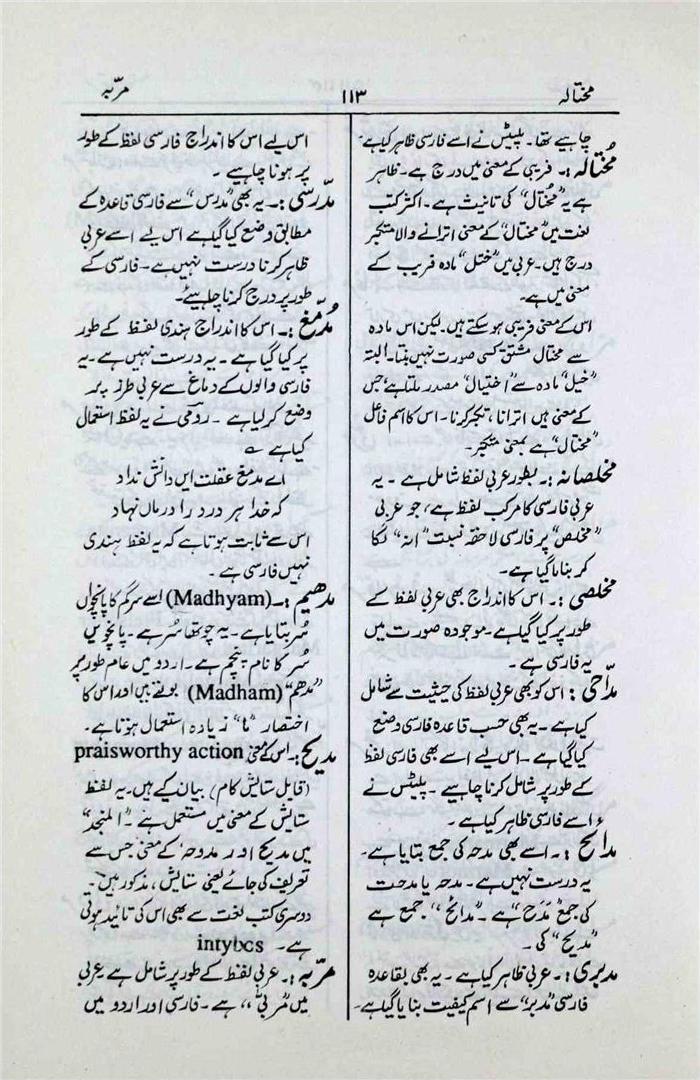 مختالہ
۱۱۳
مربّہ
چاہیے تھا۔ پلیٹس نے اسے فارسی ظاہر کیا ہے۔
مُختالہ :۔ فریبی کے معنی میں درج ہے۔ ظاہر
ہے یہ ”مُختال“ کی تانیث ہے۔ اکثر کتب
لغت میں ”مختال“ کے معنی اترانے والا متکبر
درج ہیں۔ عربی میں ”ختل“ مادہ فریب کے
معنی میں ہے۔
اس کے معنی فریبی ہو سکتے ہیں۔ لیکن اس مادہ
سے مختال مشتق کسی صورت نہیں بنتا۔ البتہ
”خیل“ مادہ سے ”اختیال“ مصدر ملتا ہے جس
کے معنی ہیں اترانا، تکبر کرنا۔ اس کا اسم فاعل
”مختال“ ہے بمعنی متکبر۔
مخلصانہ :۔ بطور عربی لفظ شامل ہے ۔ یہ
عربی فارسی کا مرکب لفظ ہے، جو عربی
”مخلص“ پر فارسی لاحقہ نسبت ”انہ“ لگا
کر بنایا گیا ہے۔
مخلصی :۔ اس کا اندراج بھی عربی لفظ کے
طور پر کیا گیا ہے۔ موجودہ صورت میں
یہ فارسی ہے ۔
مدّاحی : اس کو بھی عربی لفظ کی حیثیت سے شامل
کیا ہے۔ یہ بھی حسب قاعدہ فارسی وضع
کیا گیا ہے ۔ اس لیے اسے بھی فارسی لفظ
کے طور پر شامل کرنا چاہیے ۔ پلیٹس نے
اسے فارسی ظاہر کیا ہے ۔
مدائح :۔ اسے بھی مدحہ کی جمع بتایا ہے۔
یہ درست نہیں ہے۔ مدحہ یا مدحت
کی جمع ”مَدَح“ ہے ۔ ”مدائح“ جمع ہے
”مدیح“ کی ۔
مدبری :۔ عربی ظاہر کیا ہے ۔ یہ بھی بقاعدہ
فارسی ”مدبر“ سے اسم کیفیت بنایا گیا ہے۔
اس لیے اس کا اندراج فارسی لفظ کے طور
پر ہونا چاہیے ۔
مدّرسی :۔ یہ بھی ”مدرس“ سے فارسی قاعدہ کے
مطابق وضع کیا گیا ہے اس لیے اسے عربی
ظاہر کرنا درست نہیں ہے۔ فارسی کے
طور پر درج کرنا چاہیئے۔
مُدمّغ :۔ اس کا اندراج ہندی لفظ کے طور
پر کیا گیا ہے ۔ یہ درست نہیں ہے۔ یہ
فارسی والوں کے دماغ سے عربی طرز پر
وضع کر لیا ہے ۔ رومی نے یہ لفظ استعمال
کیا ہے ؎
اے مدمغ عقلت ایں دانش نداد
کہ خدا ہر درد را درماں نہاد
اس سے ثابت ہوتا ہے کہ یہ لفظ ہندی
نہیں فارسی ہے ۔
مدھیم :۔ (Madhyam) اسے سرگم کا پانچواں
سُر بتایا ہے ۔ یہ چوتھا سُر ہے ۔ پانچویں
سُر کا نام پنچم ہے ۔ اردو میں عام طور پر
”مدھم“ (Madham) بولتے ہیں اور اس کا
اختصار ”ما“ زیادہ استعمال ہوتا ہے۔
مدیح :۔ اس کے معنی praisworthy action
(قابل ستایش کام) بیان کیے ہیں۔ یہ لفظ
ستایش کے معنی میں مستعمل ہے ۔ ”المنجد“
میں مدیح اور مدوحہ کے معنی جس سے
تعریف کی جائے یعنی ستایش، مذکور ہیں۔
دوسری کتب لغت سے بھی اس کی تائید ہوتی
ہے۔ intybcs
مربّہ :۔ عربی لفظ کے طور پر شامل ہے عربی
میں ”مُربیّٰ“ ہے ۔ فارسی اور اردو میں